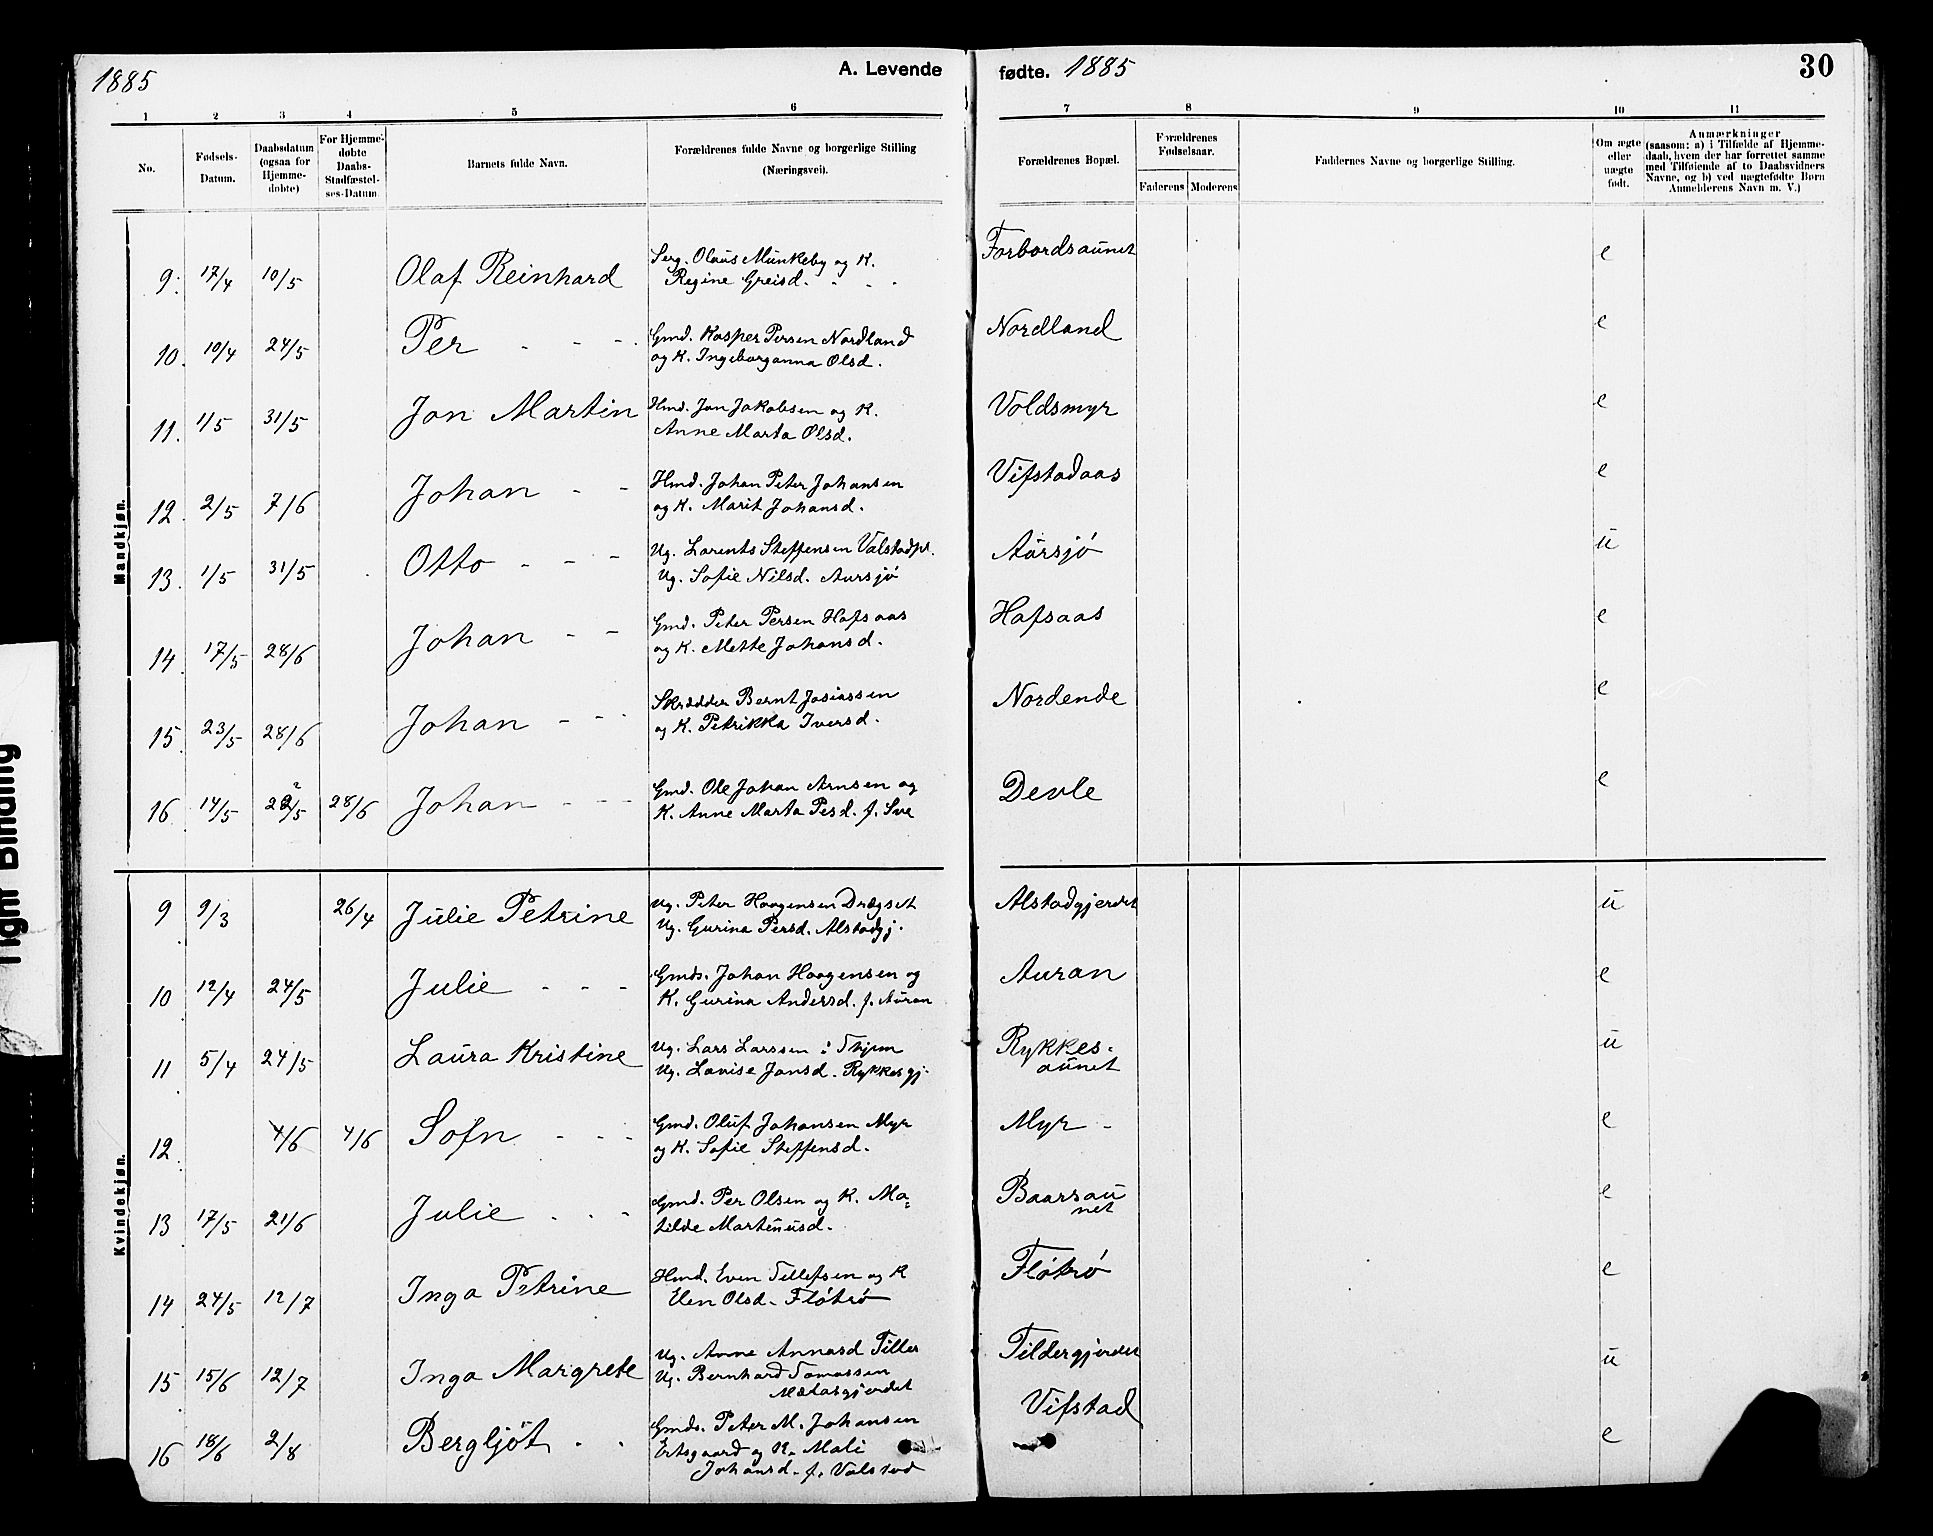 1885
A. Levende
fødte. 1885
30
1 2 3 4 5 6 7 8 9 10 11
No.
Fødsels-
Datum.
Daabsdatum
(ogsaa for
Hjemme-
døbte)
For Hjemme-
døbte
Daabs-
Stadfæstel-
ses-Datum.
Barnets fulde Navn.
Forældrenes fulde Navne og borgerlige Stilling
(Næringsvei).
Forældrenes Bopæl.
Forældrenes
Fødselsaar.
Faderens Moderens
Faddernes Navne og borgerlige Stilling.
Om ægte
eller
uægte
født.
Anmærkninger
(saasom: a) i Tilfælde af Hjemme-
daab, hvem der har forrettet samme
med Tilføiende af to Daabsvidners
Navne, og b) ved uægtefødte Børn
Anmelderens Navn m. V.)
Mandkjøn.
9. 17/4 10/5 Olaf Reinhard Serg. Olaus Munkeby og K. Forbordsaunet e
Regine Greisd. - - -
10. 10/4 24/5 Per - - - Gmd. Kasper Persen Nordland Nordland e
og K. Ingeborganna Olsd.
11. 1/5 31/5 Jon Martin Hmd. Jon Jakobsen og K. Voldsmyr e
Anne Marta Olsd.
12. 2/5 7/6 Johan - - Hmd. Johan Peter Johansen Vifstadaas e
og K. Marit Johansd.
13. 1/5 31/5 Otto - - - Ug. Lorents Steffensen Valstadpl. Aursjø u
Ug. Sofie Nilsd. Aursjø
14 17/5 28/6 Johan - - Gmd. Peter Persen Hafsaas Hafsaas e
og K. Mette Johansd.
15. 23/5 28/6 Johan - - - Skrædder Bernt Josiassen Nordende e
og K. Petrikka Iversd.
16 14/5 28/6 Johan - - - Gmd. Ole Johan Arnsen og Devle e
K. Anne Marta Pesd. f. Sve
Kvindekjøn.
9 9/3 26/4 Julie Petrine Ug. Peter Haagensen Drægset Alstadgjerdet u
Ug. Gurina Persd. Alstadgj.
10 12/4 24/5 Julie - - - Gmds. Johan Haagensen og Auran e
K. Gurina Andersd. f. Auran
11 5/4 24/5 Laura Kristine Ug. Lars Larssen i Thjem Rykkes-
aunet u
Ug. Lovise Jonsd. Rykkesgj.
12. 4/6 4/6 Sofn - - - Gmd. Oluf Johansen Myr Myr - e
og K. Sofie Steffensd.
13 17/5 21/6 Julie - - - Gmd. Per Olsen og K. Ma- Baarsau
net e
tilde Martinusd.
14 24/5 12/7 Inga Petrine Hmd. Even Tellefsen og K Fløtrø e
Elen Olsd. Fløtrø
15 15/6 12/7 Inga Margrete Ug. Anne Annasd Tiller Tildergjerdet u
Ug. Bernhard Tomassen
16 18/6 2/8 Bergljot - - Gmds. Peter M. Johansen Vifstad e
Ertsgaard og K. Mali
Johansd. f. Valstad
Tight Binding